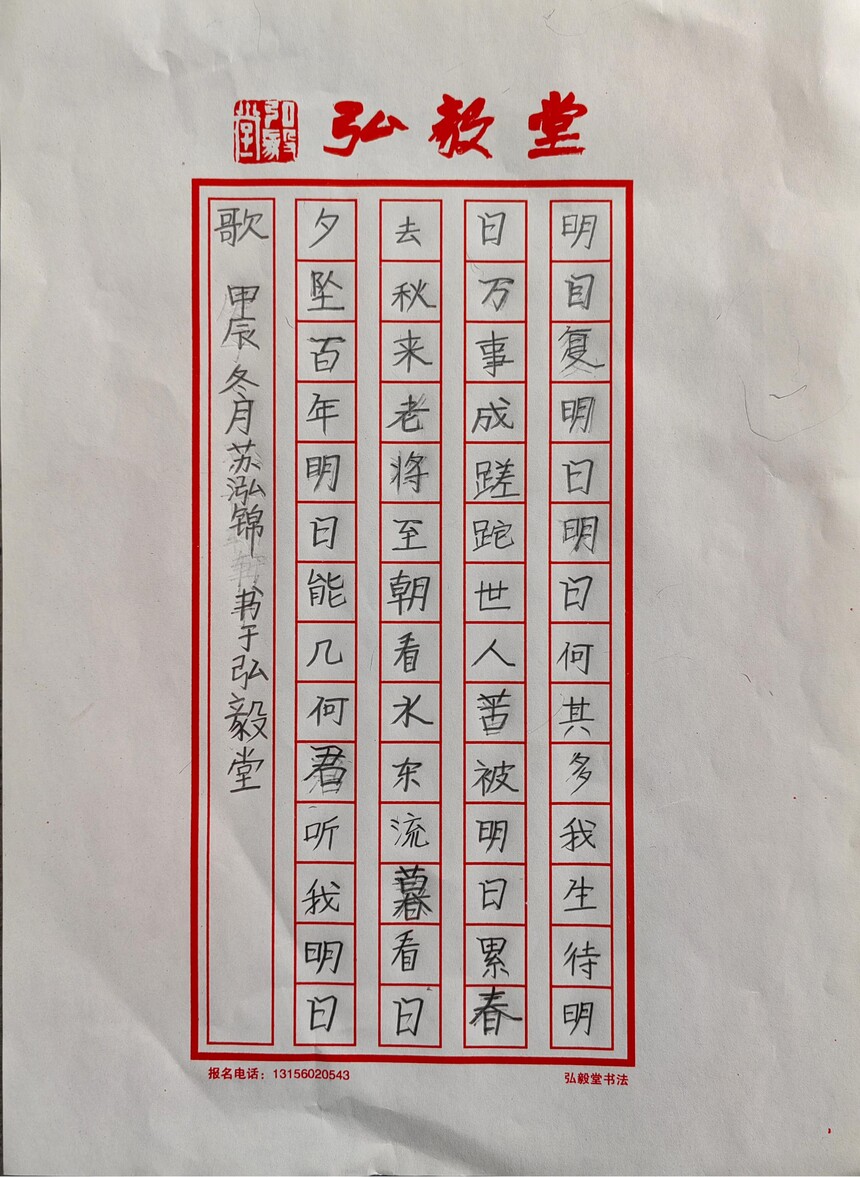 弘毅堂
弘毅堂
明日复明日明日何其多我生待明
日万事成蹉跎世人苦被明日累春
去秋来老将至朝看水东流暮看日
夕坠百年明日能几何君听我明日
歌 甲辰冬月苏泓锦书于弘毅堂
报名电话：13156020543
弘毅堂书法